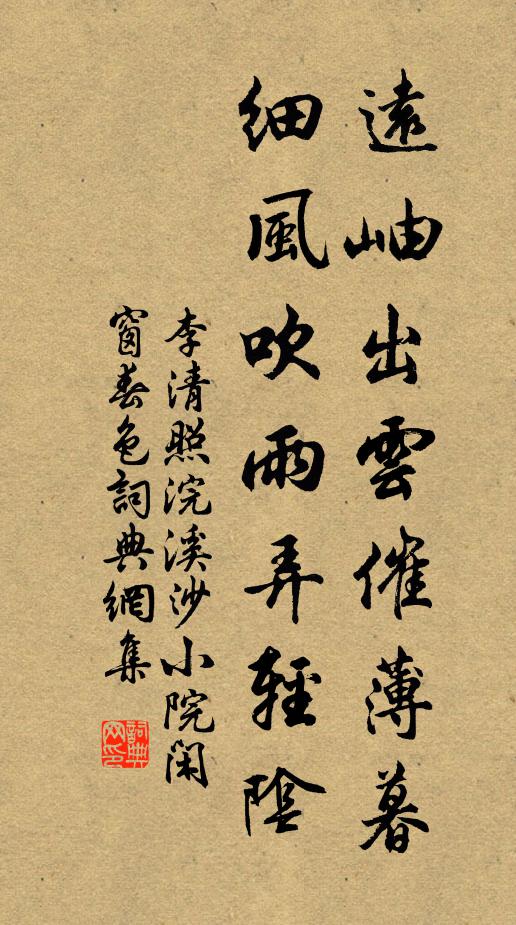 遠岫出雲催薄暮
細風吹雨弄輕陰
李清照浣溪沙小院閑
窗春色詞典網集
詞典
网印